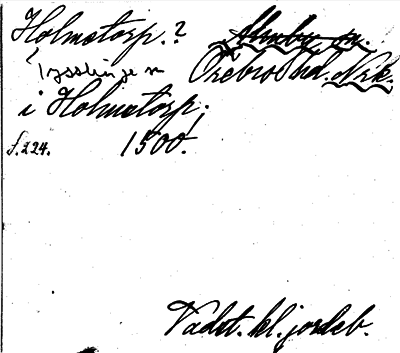 Holmstorp.? Almby sn.
Tysslinge sn Örebro hd. Nrk.
i Holmstorp.
f. 224. 1500.
Vadst. kl. jordeb.